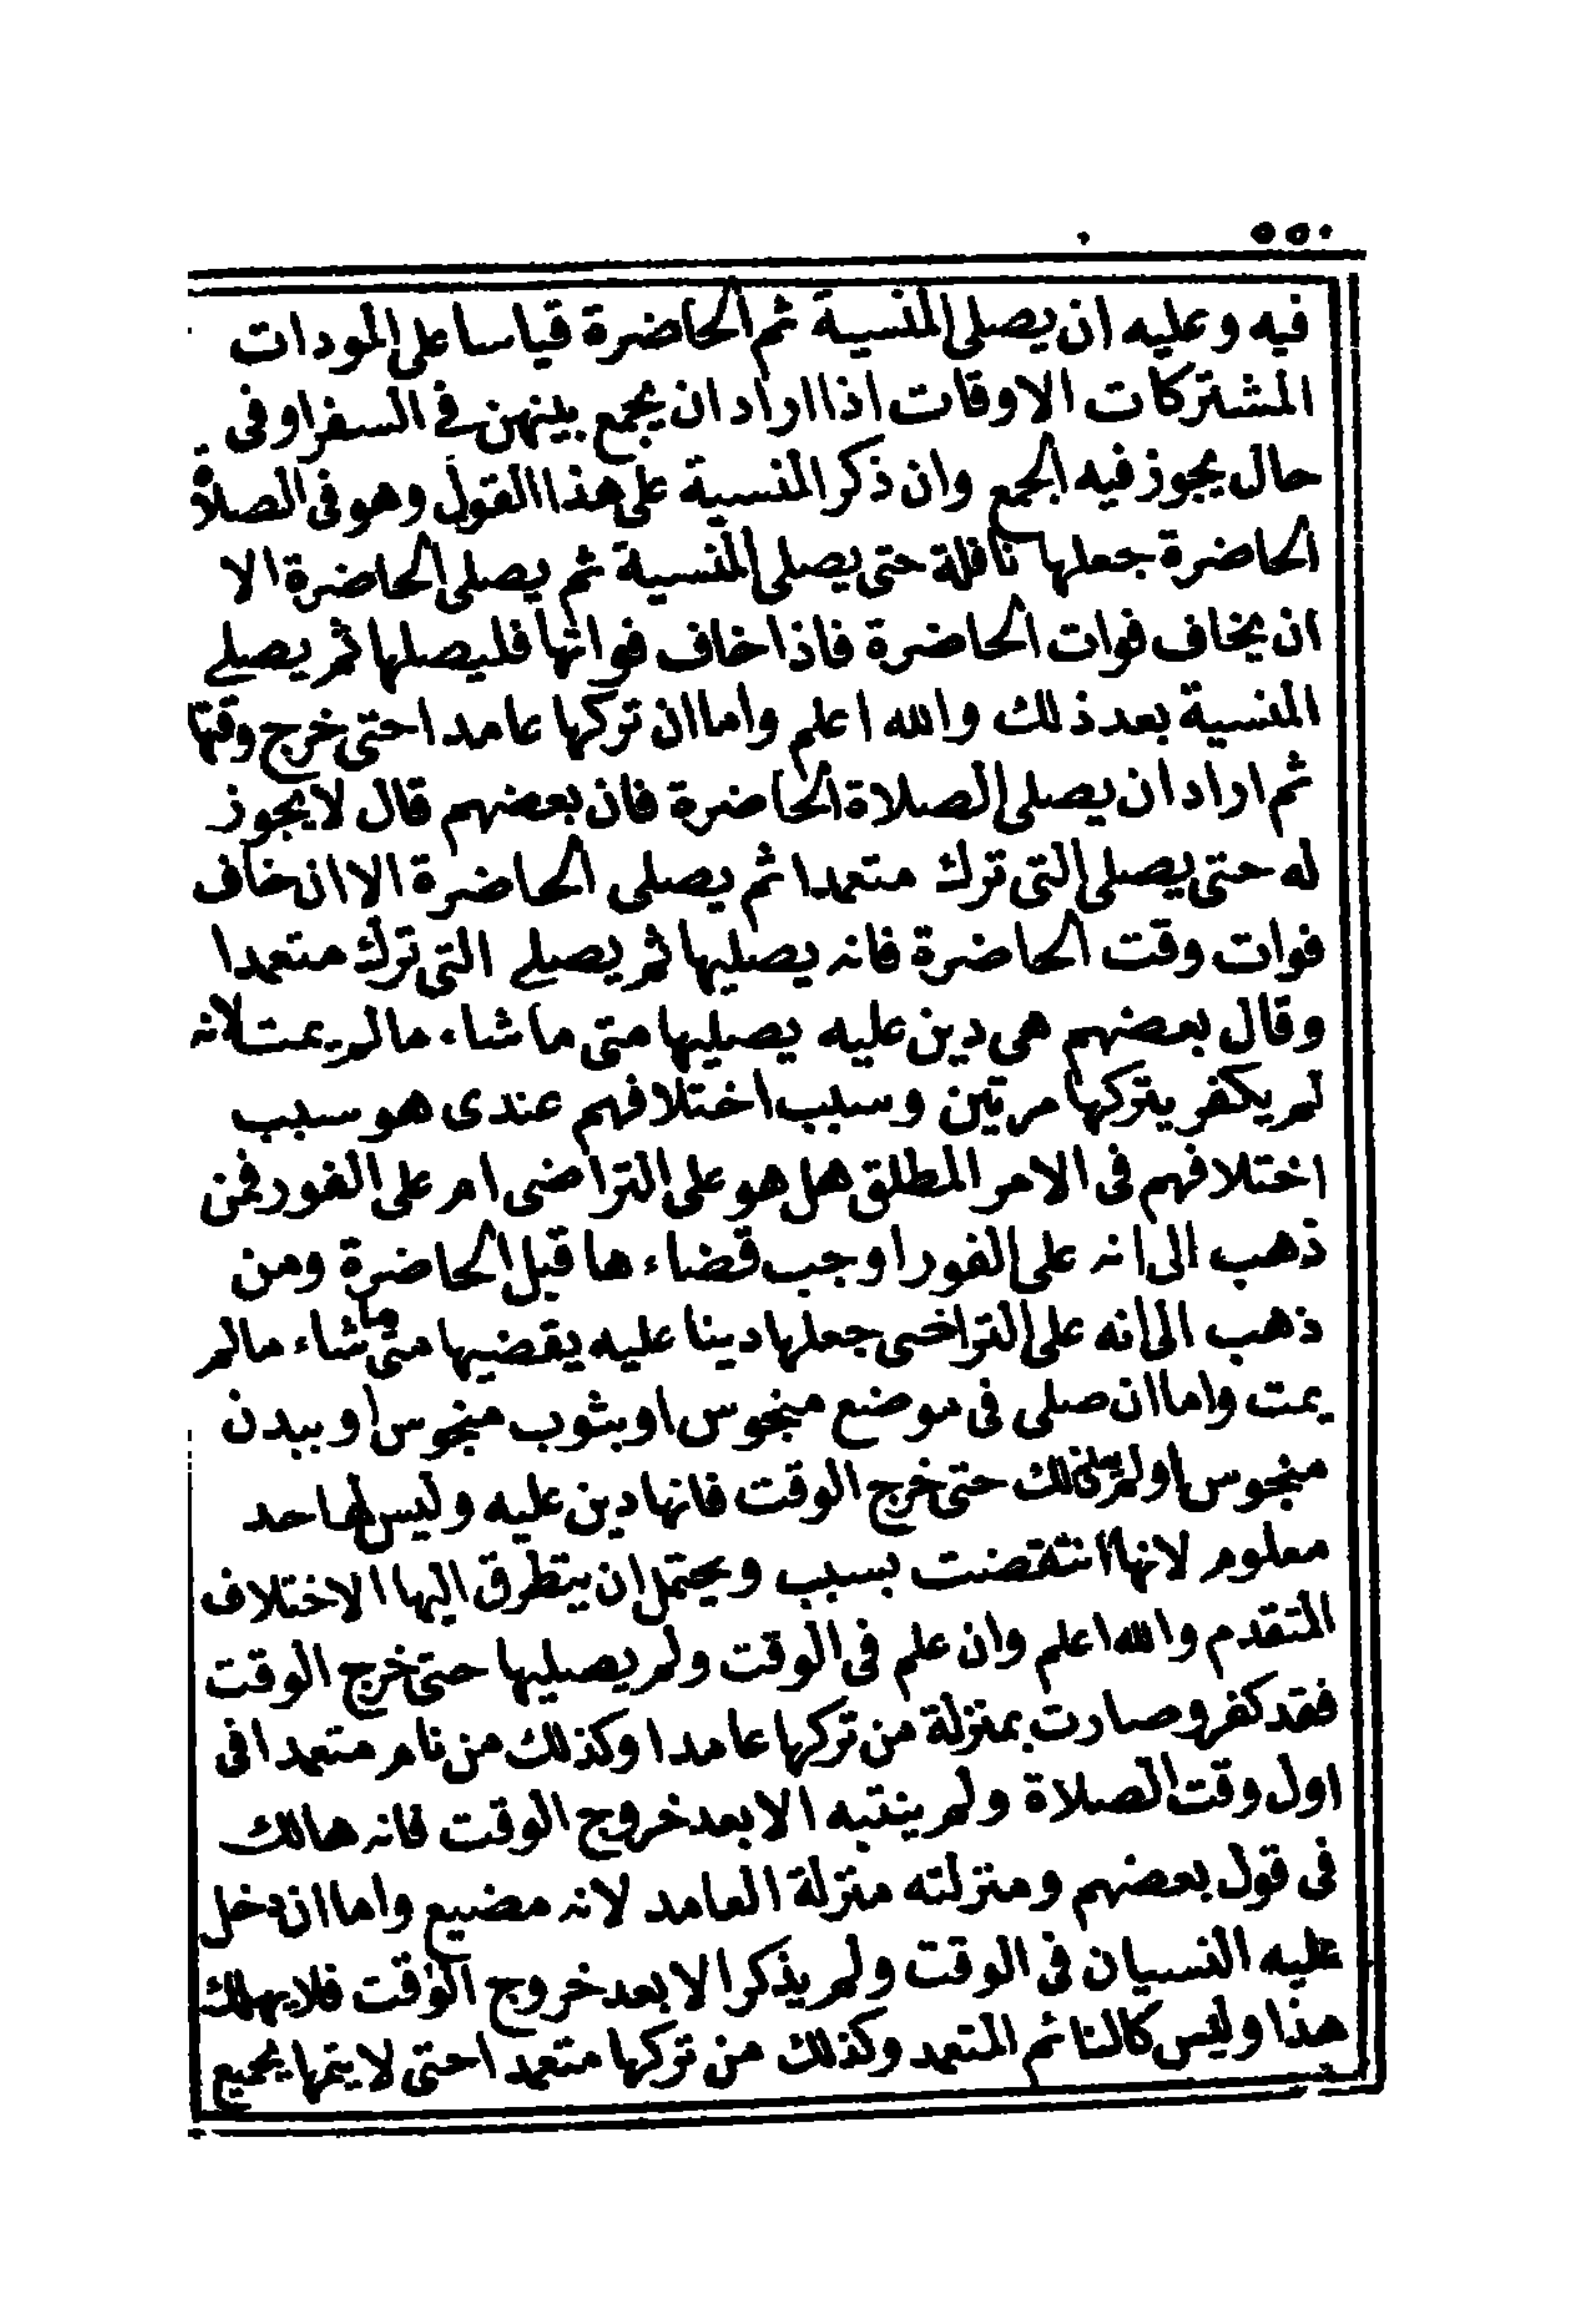 ٥٥٠
فيه وعليه ان يصلى المنسية ثم الحاضرة قياسا على المودات
المشتركات الاوقات اذا اراد ان يجمع بينهن في السفر او فى
حال يجوز فيه الجمع وان ذكر المنسية على هذا القول وهو فى الصلاة
الحاضرة جعلها نافلة حتى يصلى المنسية ثم يصلى الحاضرة الا
ان يخاف فوات الحاضرة فاذا خاف فواتها فليصلها ثم يصلے
المنسية بعد ذلك والله اعلم واما ان تركها عامدا حتى خرج وقتها
ثم اراد ان يصلى الصلاة الحاضرة فان بعضهم قال لا يجوز
له حتى يصلى التى ترك متعمدا ثم يصلى الحاضرة الا ان خاف
فوات وقت الحاضرة فانه يصليها ثم يصلے التى ترك متعمدا
وقال بعضهم هى دين عليه يصليها متى ما شاء ما لم يمت لانه
لم يكفر بتركها مرتين وسبب اختلافهم عندى هو سبب
اختلافهم فى الامر المطلق هل هو على التراضى ام على الفور فمن
ذهب الى انه على الفور اوجب قضاءها قبل الحاضرة ومن
ذهب الى انه على التراخى جعلها دينا عليه يقضيها متى ما شاء ما لم
يمت واما ان صلى فى موضع منجوس او بثوب منجوس او ببدن
منجوس او لم ذلك حتى خرج الوقت فانها دين عليه وليس لها حد
معلوم لانها انتقضت بسبب ويحتمل ان يتطرق اليها الاختلاف
المتقدم والله اعلم وان علم فى الوقت ولم يصليها حتى خرج الوقت
فقد كفر وصارت بمنزلة من تركها عامدا وكذلك من نام متعمدا فى
اول وقت الصلاة ولم ينتبه الا بعد خروج الوقت فانه هالك
فى قول بعضهم ومنزلته منزلة العامد لانه مضيع واما ان دخل
عليه النسيان فى الوقت ولم يذكر الا بعد خروج الوقت فلا يهلك
هذا وليس كالنائم المتعمد وكذلك من تركها متعمدا حتى لا يتمها بجميع